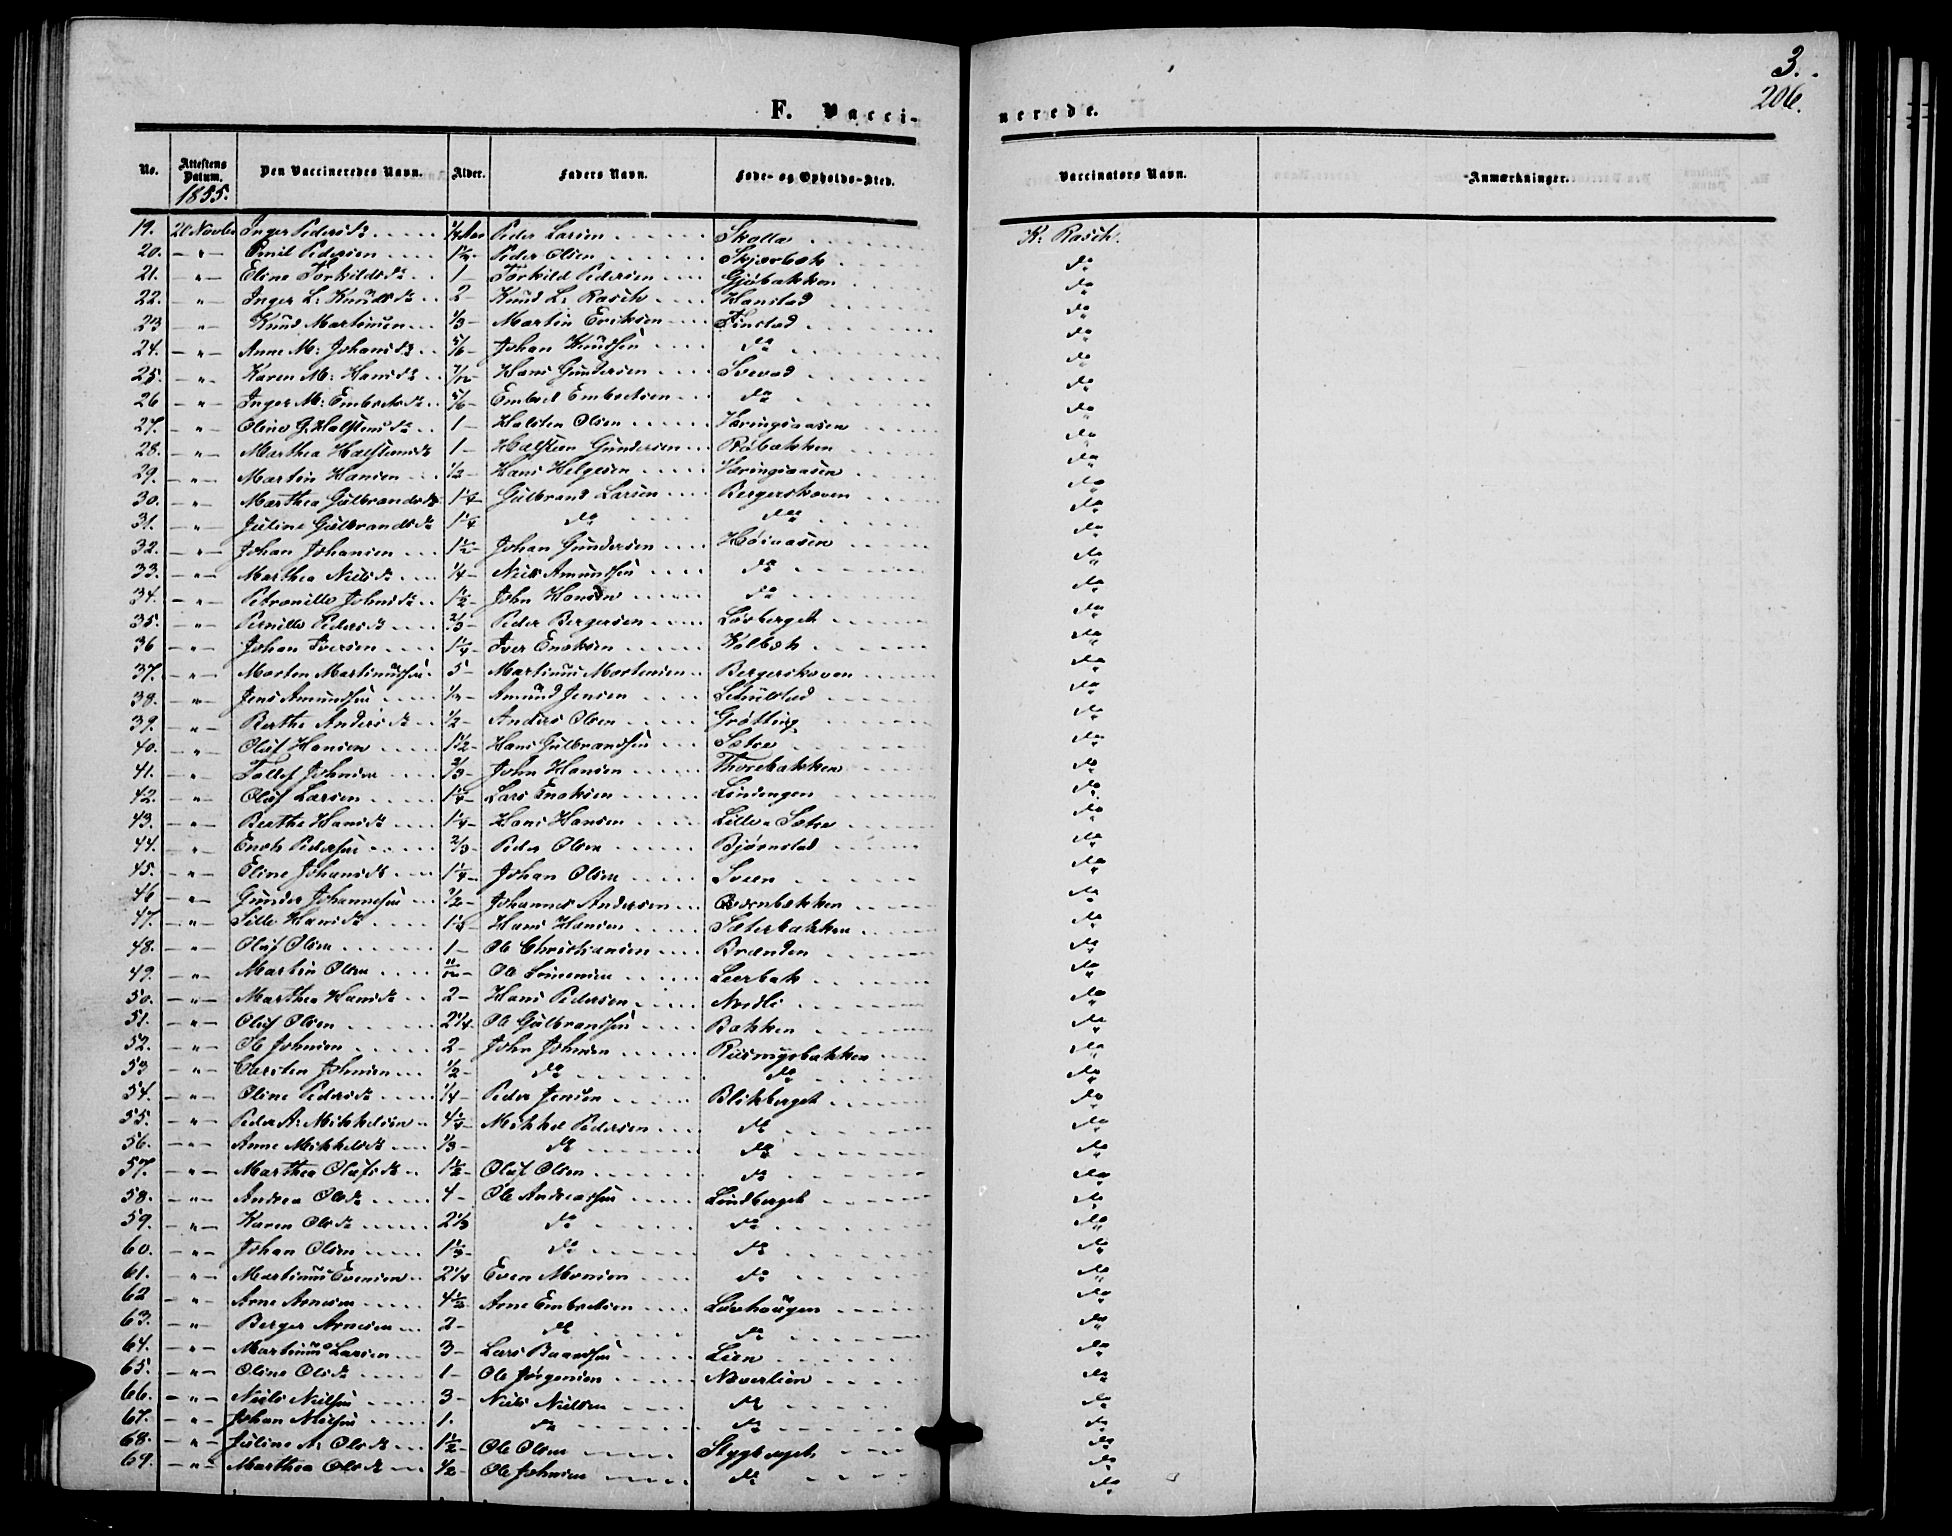 3.
206.
F. Vacci-
nerede.
No. Attestens Datum. Den Vaccineredes Navn. Alder. Faders Navn. Føde- og Opholds-Sted. Vaccinators Navn. Anmærkninger.
1855.
19. Inger Pedersdr Peder Larsen K: Rasch.
20. - " - Emil Pedersen Peder Olsen Skjærbæk do
21. " - Eline Torkildsdr 1 Torkild Pedersen Gjøbakken do
22. - " - Inger L: Knudsdr 2 - Knud L: Rasch Hanstad do
23 - " - Knud Martinsen 1/3 - Martin Eriksen Finstad do
24. - " - Anne M: Johansdr 5/6 - Johan Knudsen do do
25. - " - Karen M: Hansdr 7/12 - Hans Gundersen do
26 - " - Inger M: Embretsdr 5/6 - Embret Embretsen do do
27. - " - Oline G. Halstensdr 1 - Halsten Olsen Væringsaasen do
28. - " - Marthea Halstensdr 1 - Halsten Gundersen Røbakken do
29. - " - Martin Hansen 1/2 - Hans Helgesen Væringsaasen do
30. - " - Marthea Gulbrandsdr 1 1/4 - Gulbrand Larsen Bergerskoven do
31. - " - Juline Gulbrandsdr 1 1/4 do do do
32. - " - Johan Johansen 1 1/2 - Johan Gundersen Høiaasen do
33. - " - Marthea Nielsdr 1/4 - Niels Amundsen do do
34. - " - Petronille Johnsdr 1 1/2 - John Hansen do do
35. - " - Pernille Pedersdr 2/3 - Peder Bergersen Løvberget do
36 - " - Johan Iversen 1 1/4 - Iver Enoksen Kolbæk do
37. - " - Morten Martinussen 5 - Martinus Mortensen Bergerskoven do
38. - " - Jens Amundsen 1/2 - Amund Jensen do
39. - " - Berthe Andersdr 1/2 - Anders Olsen Grøtting do
40. - " - Oluf Hansen 1 1/2 - Hans Gulbrandsen Sætre do
41. - " - Tollef Johnsen 2/3 - John Hansen Thorebakken do
42. - " - Oluf Larsen 1 1/4 - Lars Enoksen Lindengen do
43. - " - Berthe Hansdr 1 1/4 - Hans Hansen Lille-Sætre do
44. - " - Enok Pedersen 2/3 - Peder Olsen Bjørnstad do
45. - " - Eline Johansdr 1 1/4 - Johan Olsen Sveen do
46 - " - Gunder Johannesen 1/2 - Johannes Andersen do
47. - " - Sille Hansdr Hans Hansen Sæterbakken do
48. - " - Oluf Olsen 1 - Ole Christiansen Brænden do
49. - " - Martin Olsen 11/12 - Ole Simensen Leerbæk do
50. - " - Marthea Hansdr 2 - Hans Pedersen Nordli do
51. - " - Oluf Olsen 2 1/4 - Ole Gulbrandsen Bakken do
52. - " - Ole Johnsen 2 - John Johnsen do
53 - " - Carsten Johnsen 1/2 - do do do
54. - " - Oline Pedersdr 1/4 - Peder Jensen Blikberget do
55. - " - Peder A: Mikkelsen 4 1/4 - Mikkel Pedersen do do
56. - " - Anne Mikkelsdr 1/3 - do do do
57. - " - Marthea Olufsdr 1 1/2 - Oluf Olsen do do
58. - " - Andrea Olsdr 4 - Ole Andreassen Lindberget do
59. - " - Karen Olsdr 2 1/3 do do do
60. - " - Johan Olsen 1 1/3 - do do do
61. - " - Martinus Evensen 2 1/4 Even Monsen do do
62 - " - Arne Arnesen 4 1/2 - Arne Embretsen Løvhaugen do
63. - " - Berger Arnesen 2 - do do do
64. - " - Martinus Larsen 3 - Lars Baardsen Lien do
65. - " - Oline Olsdr 1 - Ole Jørgensen Næverlien do
66. - " - Niels Nielsen 3 - Niels Nielsen do do
67. - " - Johan Nielsen 1. do do do
68. - " - Juline A: Olsdr 1 1/2 - Ole Olsen do
69. - " - Marthea Olsdr 1/2 - Ole Johnsen do do